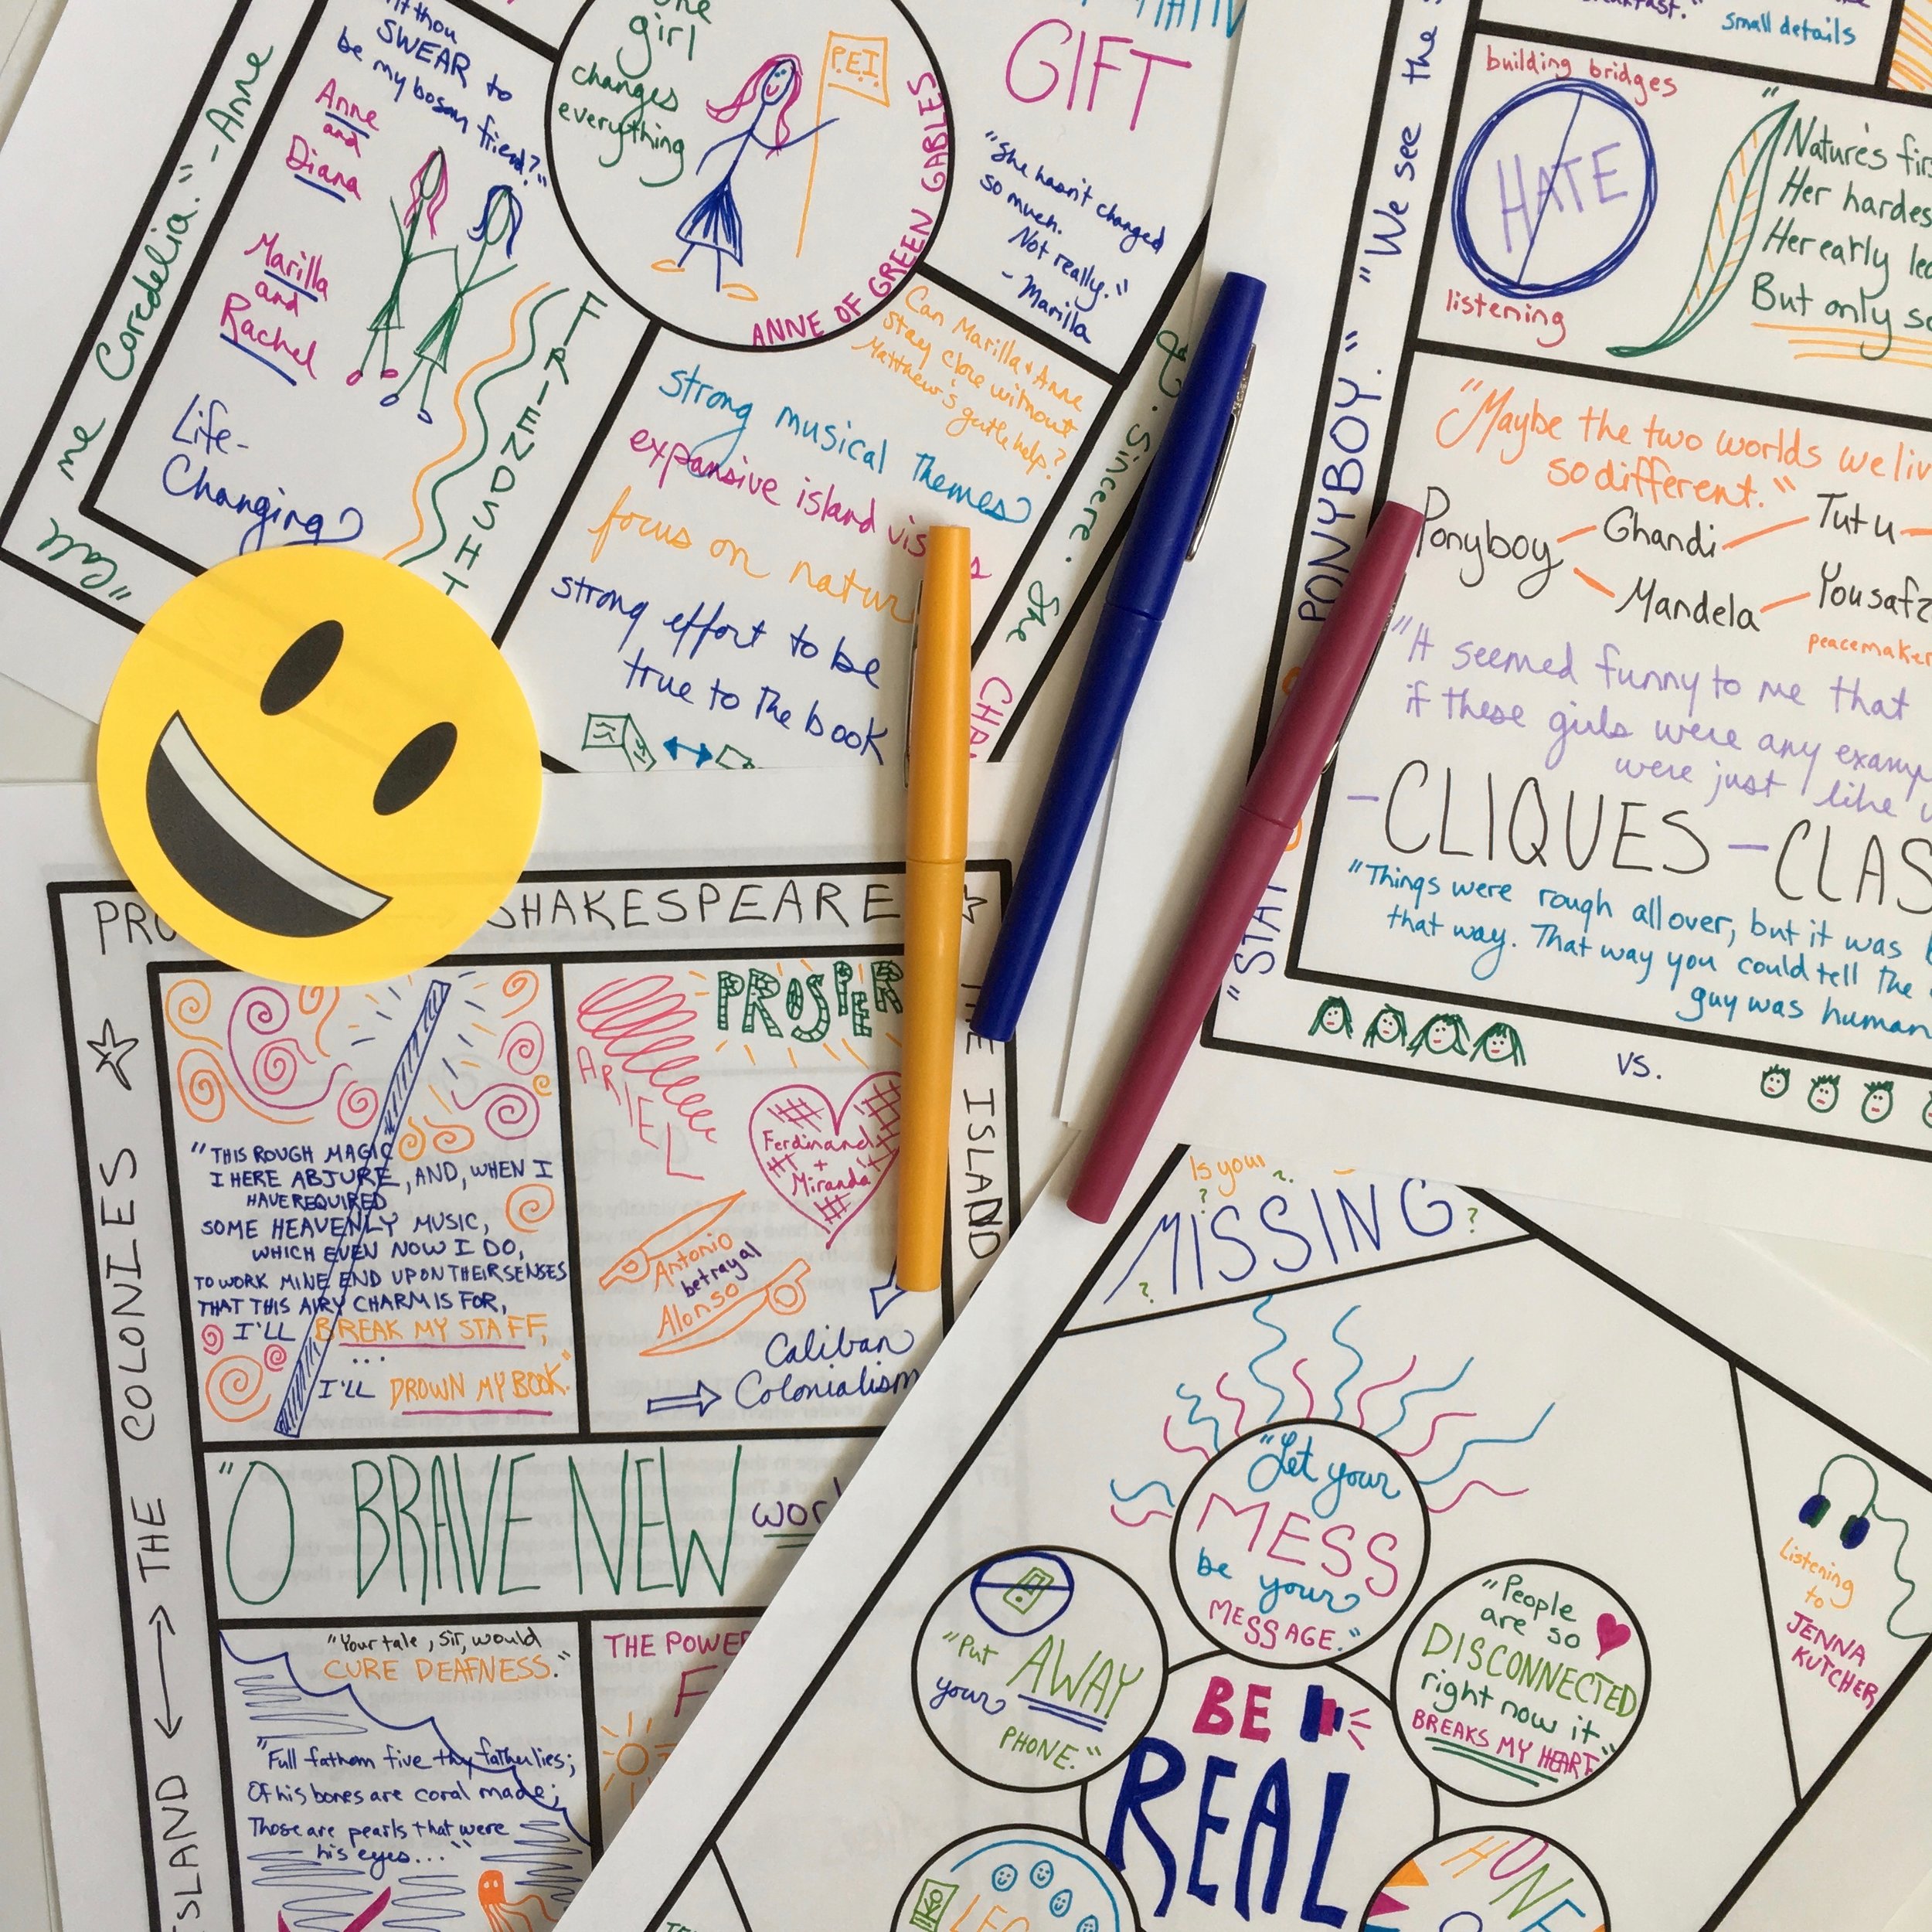 girl
changes
everything
P.E.I.
ANNE OF GREEN GABLES
thou
SWEAR to
be my bosom friend?"
Anne
and
Diana
Marilla
and
Rachel
Life-
Changing
FRIENDSHI
"Call me Coredelia." - Anne
GIFT
"She hasn't changed
so much.
Not really."
- Marilla
Can Marilla & Anne
stay close without
Matthew's gentle help?
strong musical themes
expansive island
focus on natur
strong effort to be
true to the book
Sincere. She
small details
building bridges
HATE
listening
"Nature's
Her
Her early
But only
"We see the
PONYBOY."
"Maybe the two worlds we
so different."
Ponyboy
Ghandi
Tutu
Mandela
"It seemed funny to me that
if these girls were any
were just like
-CLIQUES-
"Things were rough all over, but it was
that way. That way you could tell the
guy was human
"STAY
vs.
SHAKESPEARE
THE ISLAND
ISLAND ↔ THE COLONIES
"THIS ROUGH MAGIC
I HERE ABJURE, AND, WHEN I
HAVE REQUIRED
SOME HEAVENLY MUSIC,
WHICH EVEN NOW I DO,
TO WORK MINE END UPON THEIR SENSES
THAT THIS AIRY CHARM IS FOR,
I'LL BREAK MY STAFF,
...
I'LL DROWN MY BOOK."
ARIEL
PROSPER
Ferdinand
+
Miranda
Antonio
betrayal
Alonso
Caliban
Colonialism
"O BRAVE NEW
"Your tale, sir, would
CURE DEAFNESS."
"Full fathom five thy father lies;
Of his bones are coral made;
Those are pearls that were
his eyes..."
THE POWER
Is your
MISSING
"Let your
MESS
be your
MESSAGE."
"Put AWAY
your
PHONE."
"People
are so
DISCONNECTED
right now it
BREAKS MY HEART."
BE
REAL
Listening
to
JENNA
KUTCHER